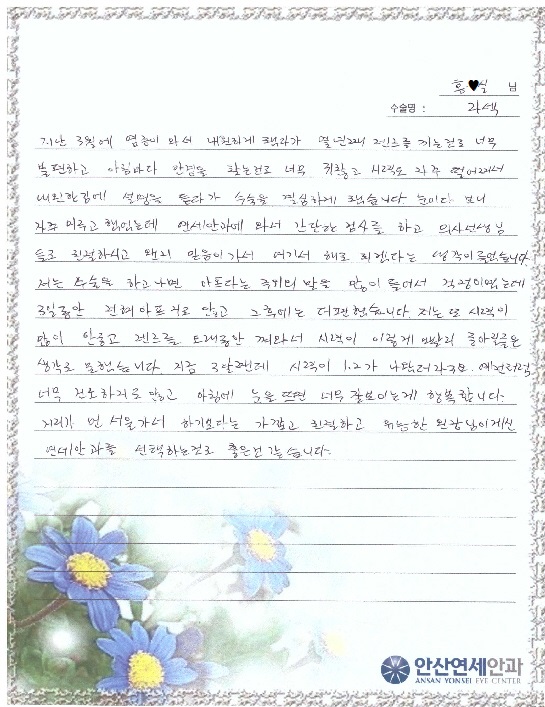 홍♥실 님
수술명 : 라섹
지난 3월에 염증이 와서 내원하게 됐다가 렌즈를 끼는것도 너무
불편하고 아침마다 안경을 찾는것도 너무 귀찮고 시력도 자주 떨어져서
내원한김에 설명을 듣다가 수술을 결심하게 됐습니다. 눈이다 보니
자주 미루고 했었는데 연세안과에 와서 간단한 검사를 하고 의사선생님
들도 친절하시고 왠지 믿음이가서 여기서 해도 되겠다는 생각이들었습니다.
저는 수술을 하고나면 아프다는 주위의 말을 많이 들어서 걱정이었는데
3일동안 전혀 아프지도 않고 그후에는 더편했습니다. 저는 또 시력이
많이 안좋고 렌즈를 오래동안 껴와서 시력이 이렇게 빨리 좋아질줄은
생각도 못했습니다. 지금 3달됐는데 시력이 1.2가 나왔더라구요. 예전처럼
너무 건조하지도 않고 아침에 눈을 뜨면 너무 잘보이는게 행복합니다.
거리가 먼 서울가서 하기보다는 가깝고 친절하고 원장님이계신
연세안과를 선택하는것도 좋은것 같습니다.
안산연세안과
ANSAN YONSEI EYE CENTER